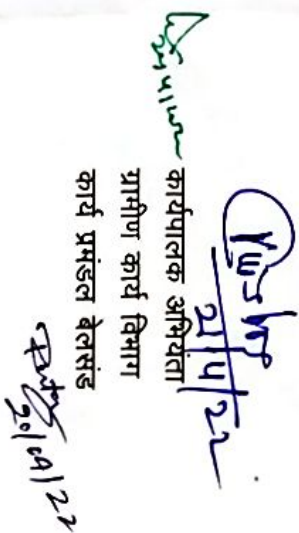 21/4/22
कार्यपालक अभियंता
ग्रामीण कार्य विभाग
कार्य प्रमंडल बेलसंड
20/04/22